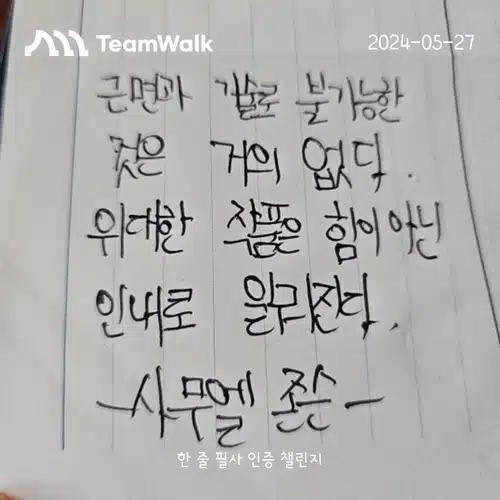 TeamWalk
2024-05-27
근면과 기술로 불가능한
것은 거의 없다.
위대한 작품은 힘이 아닌
인내로 일궈진다.
-사무엘 존슨-
한 줄 필사 인증 챌린지